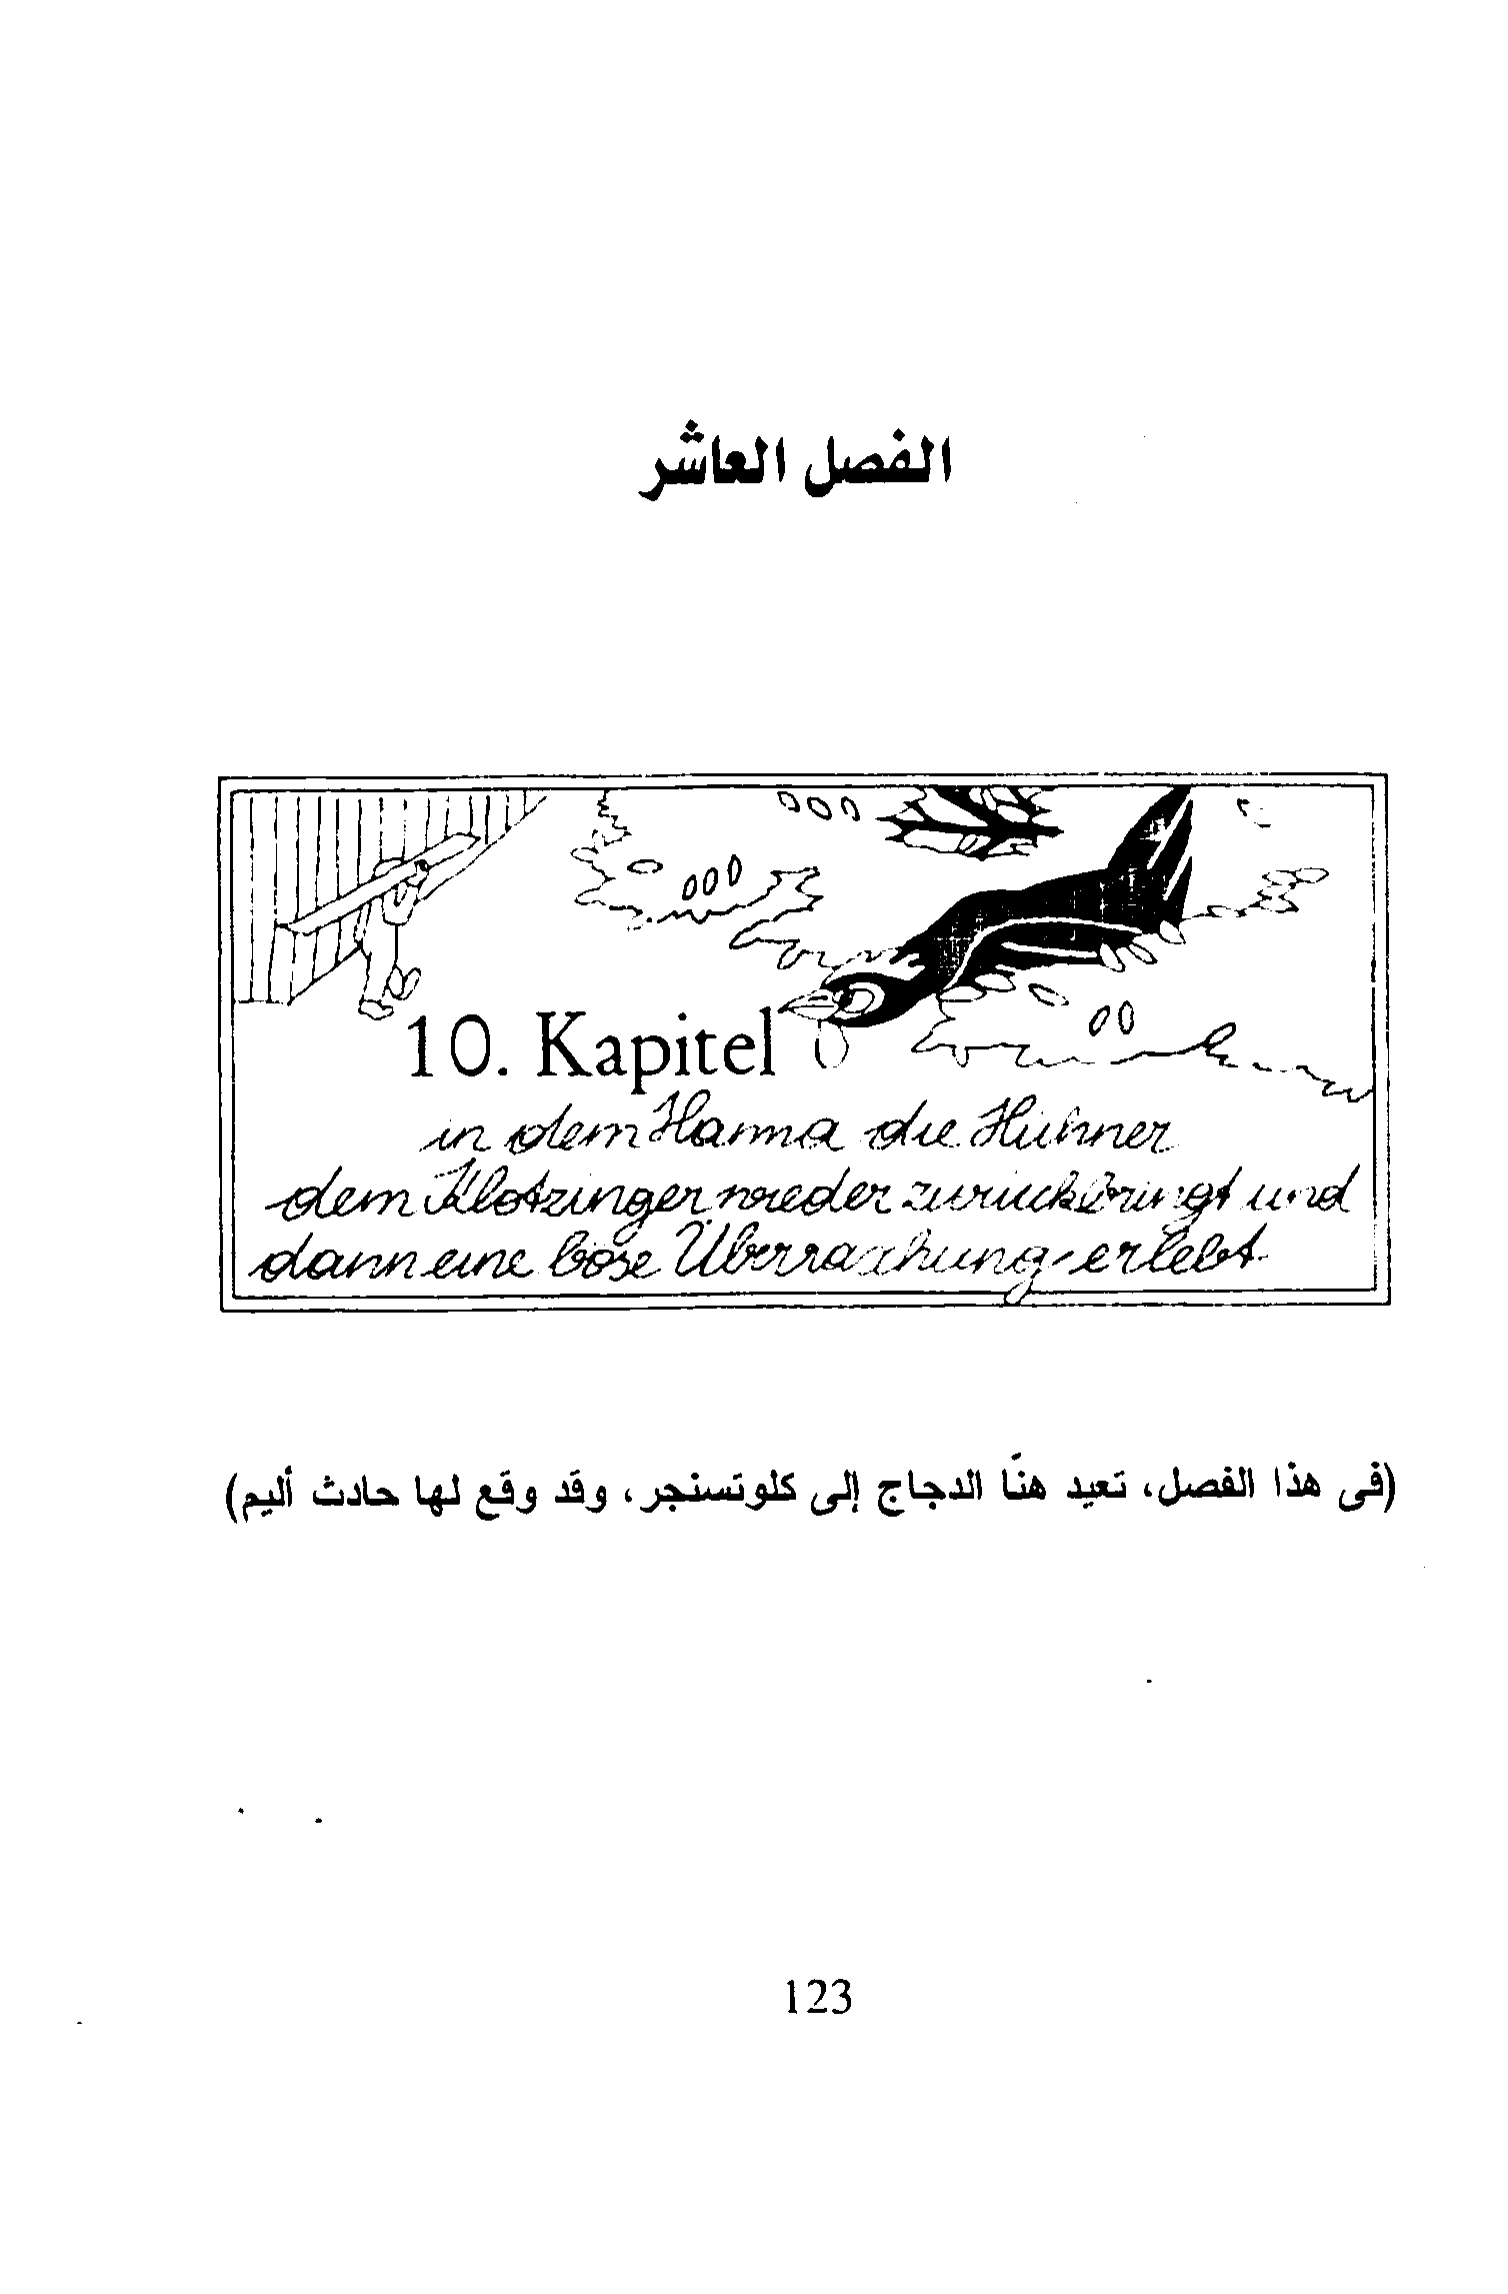 الفصل العاشر
10. Kapitel
in dem Hanna die Hühner
dem Klotzinger wieder zurückbringt und
dann eine böse Überraschung erlebt
(فى هذا الفصل، تعيد هنَا الدجاج إلى كلوتسنجر، وقد وقع لها حادث أليم)
123